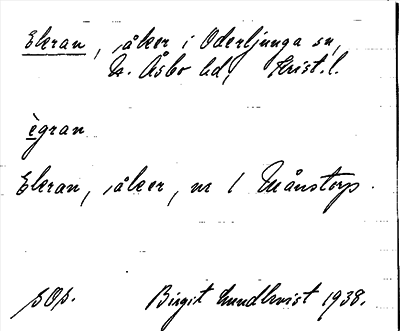 Ekran, åker i Oderljunga sn,
N. Åsbo hd, Krist. l.
ègran
Ekran, åker, nr 1 Månstorp.
sOs. Birgit Lundkvist 1938.